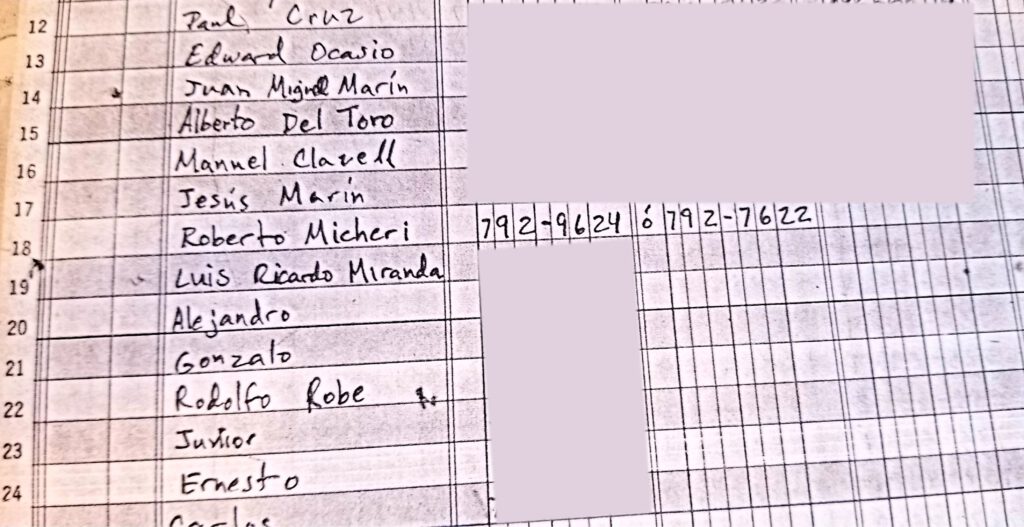 12 Paul Cruz
13 Edward Ocasio
14 Juan Miguel Marín
15 Alberto Del Toro
16 Manuel Clavell
17 Jesús Marín
18 Roberto Micheri 792-9624 ó 792-7622
19 Luis Ricardo Miranda
20 Alejandro
21 Gonzalo
22 Rodolfo Robe
23 Junior
24 Ernesto
Carlos